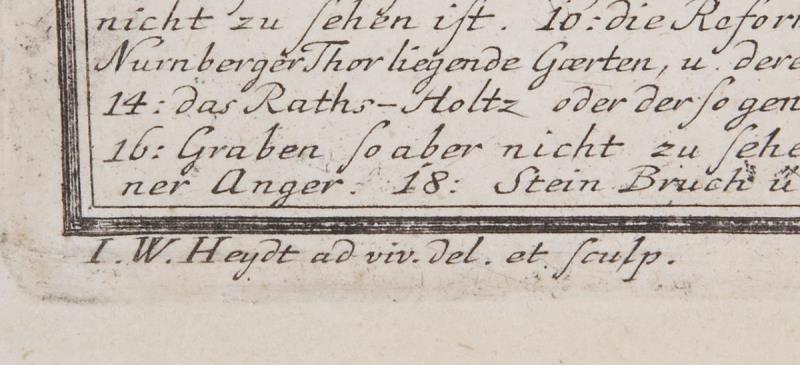 nicht zu ſehen iſt. 10: die Refor
Nurnberger Thor liegende Gærten, u. dere
14: das Raths-Holtz oder der ſo gen
16: Graben ſo aber nicht zu ſehe
ner Anger. 18: Stein Bruch ü
I. W. Heydt ad viv. del. et ſculp.